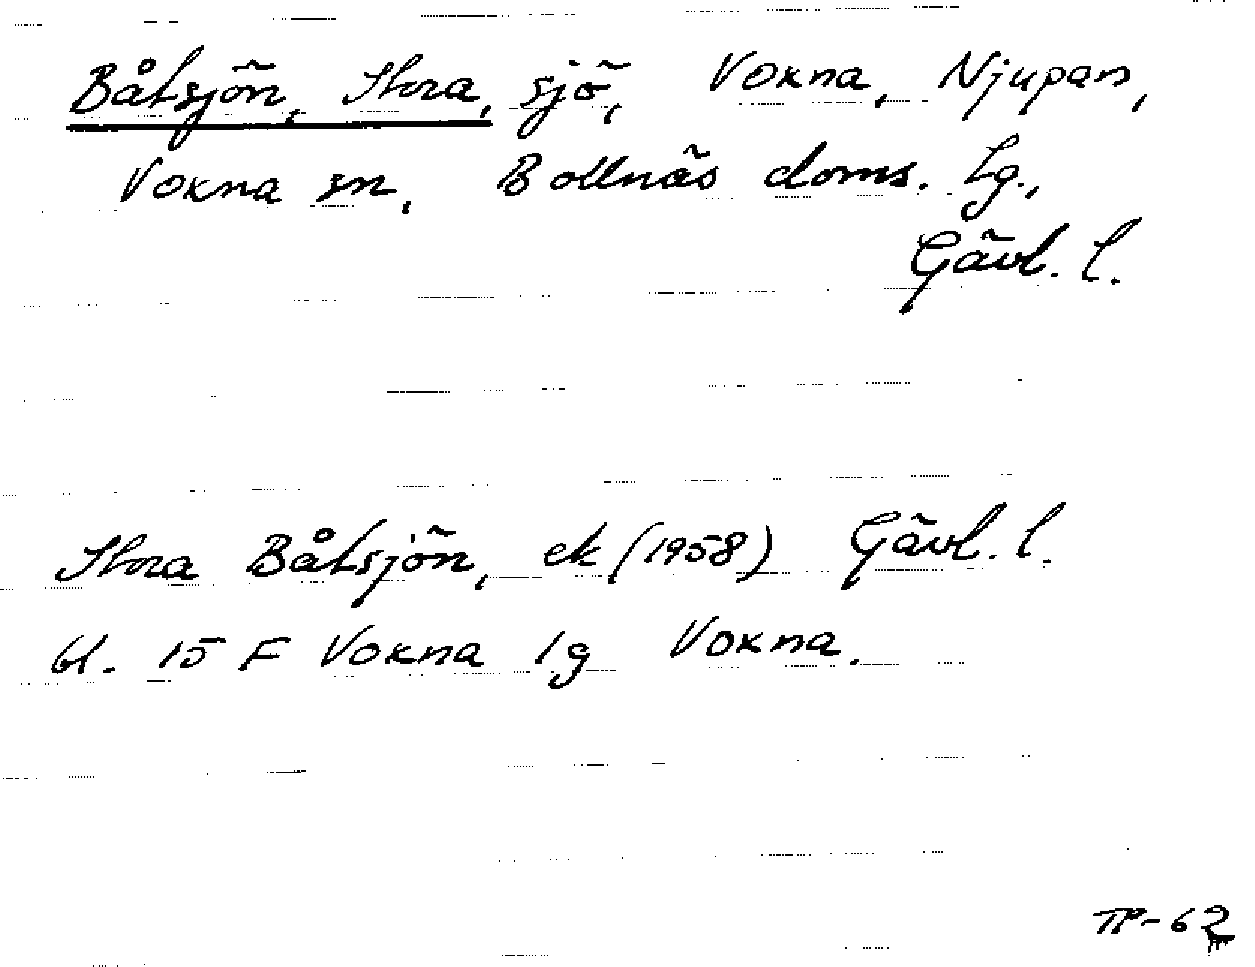 Båtsjön, Stora, sjö, Voxna, Njupan,
Voxna sn, Bollnäs doms. lg.,
Gävl. l.
Stora Båtsjön, ek (1958) Gävl. l.
bl. 15 F Voxna lg Voxna.
TP-62